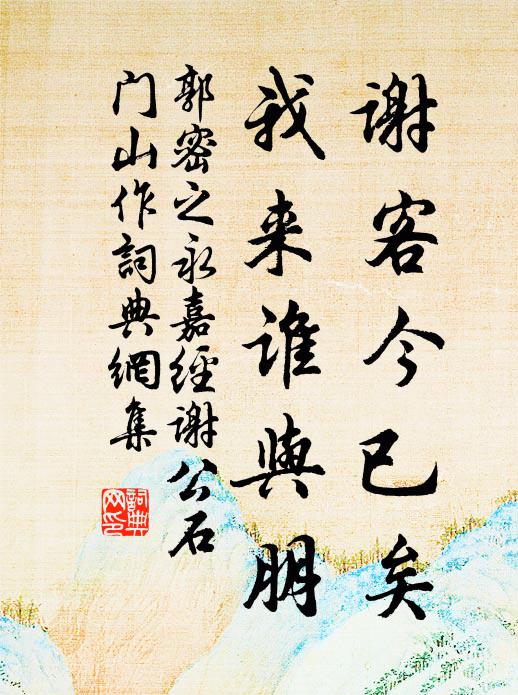 谢客今已矣
我来谁與朋
郭密之永嘉經谢公石
门山作詞典網集
詞典网印